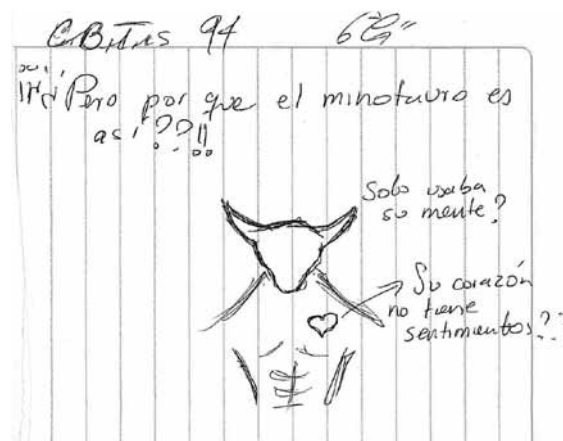 C.B.T.i.s 94 6ºG"
¡¡¿¿Pero por que el minotauro es
asi??!!
Solo usaba
su mente?
Su corazón
no tiene
sentimientos??